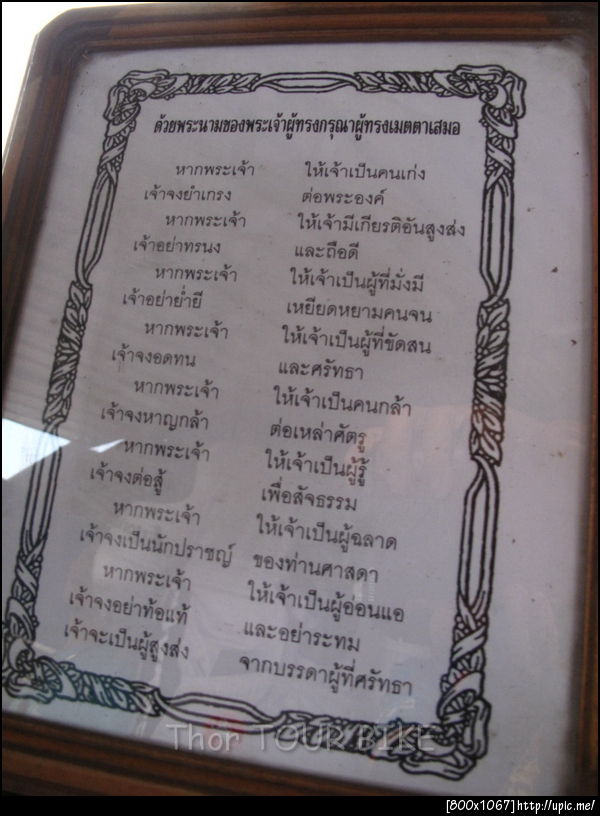 ด้วยพระนามของพระเจ้าผู้ทรงกรุณาผู้ทรงเมตตาเสมอ
หากพระเจ้า ให้เจ้าเป็นคนเก่ง
เจ้าจงยำเกรง ต่อพระองค์
หากพระเจ้า ให้เจ้ามีเกียรติอันสูงส่ง
เจ้าอย่าทรนง และถือดี
หากพระเจ้า ให้เจ้าเป็นผู้ที่มั่งมี
เจ้าอย่าย่ำยี เหยียดหยามคนจน
หากพระเจ้า ให้เจ้าเป็นผู้ที่ขัดสน
เจ้าจงอดทน และศรัทธา
หากพระเจ้า ให้เจ้าเป็นคนกล้า
เจ้าจงหาญกล้า ต่อเหล่าศัตรู
หากพระเจ้า ให้เจ้าเป็นผู้รู้
เจ้าจงต่อสู้ เพื่อสัจธรรม
หากพระเจ้า ให้เจ้าเป็นผู้ฉลาด
เจ้าจงเป็นนักปราชญ์ ของท่านศาสดา
หากพระเจ้า ให้เจ้าเป็นผู้อ่อนแอ
เจ้าจงอย่าท้อแท้ และอย่าระทม
เจ้าจะเป็นผู้สูงส่ง จากบรรดาผู้ที่ศรัทธา
Thor TOUR BIKE
[800x1067] http://upic.me/